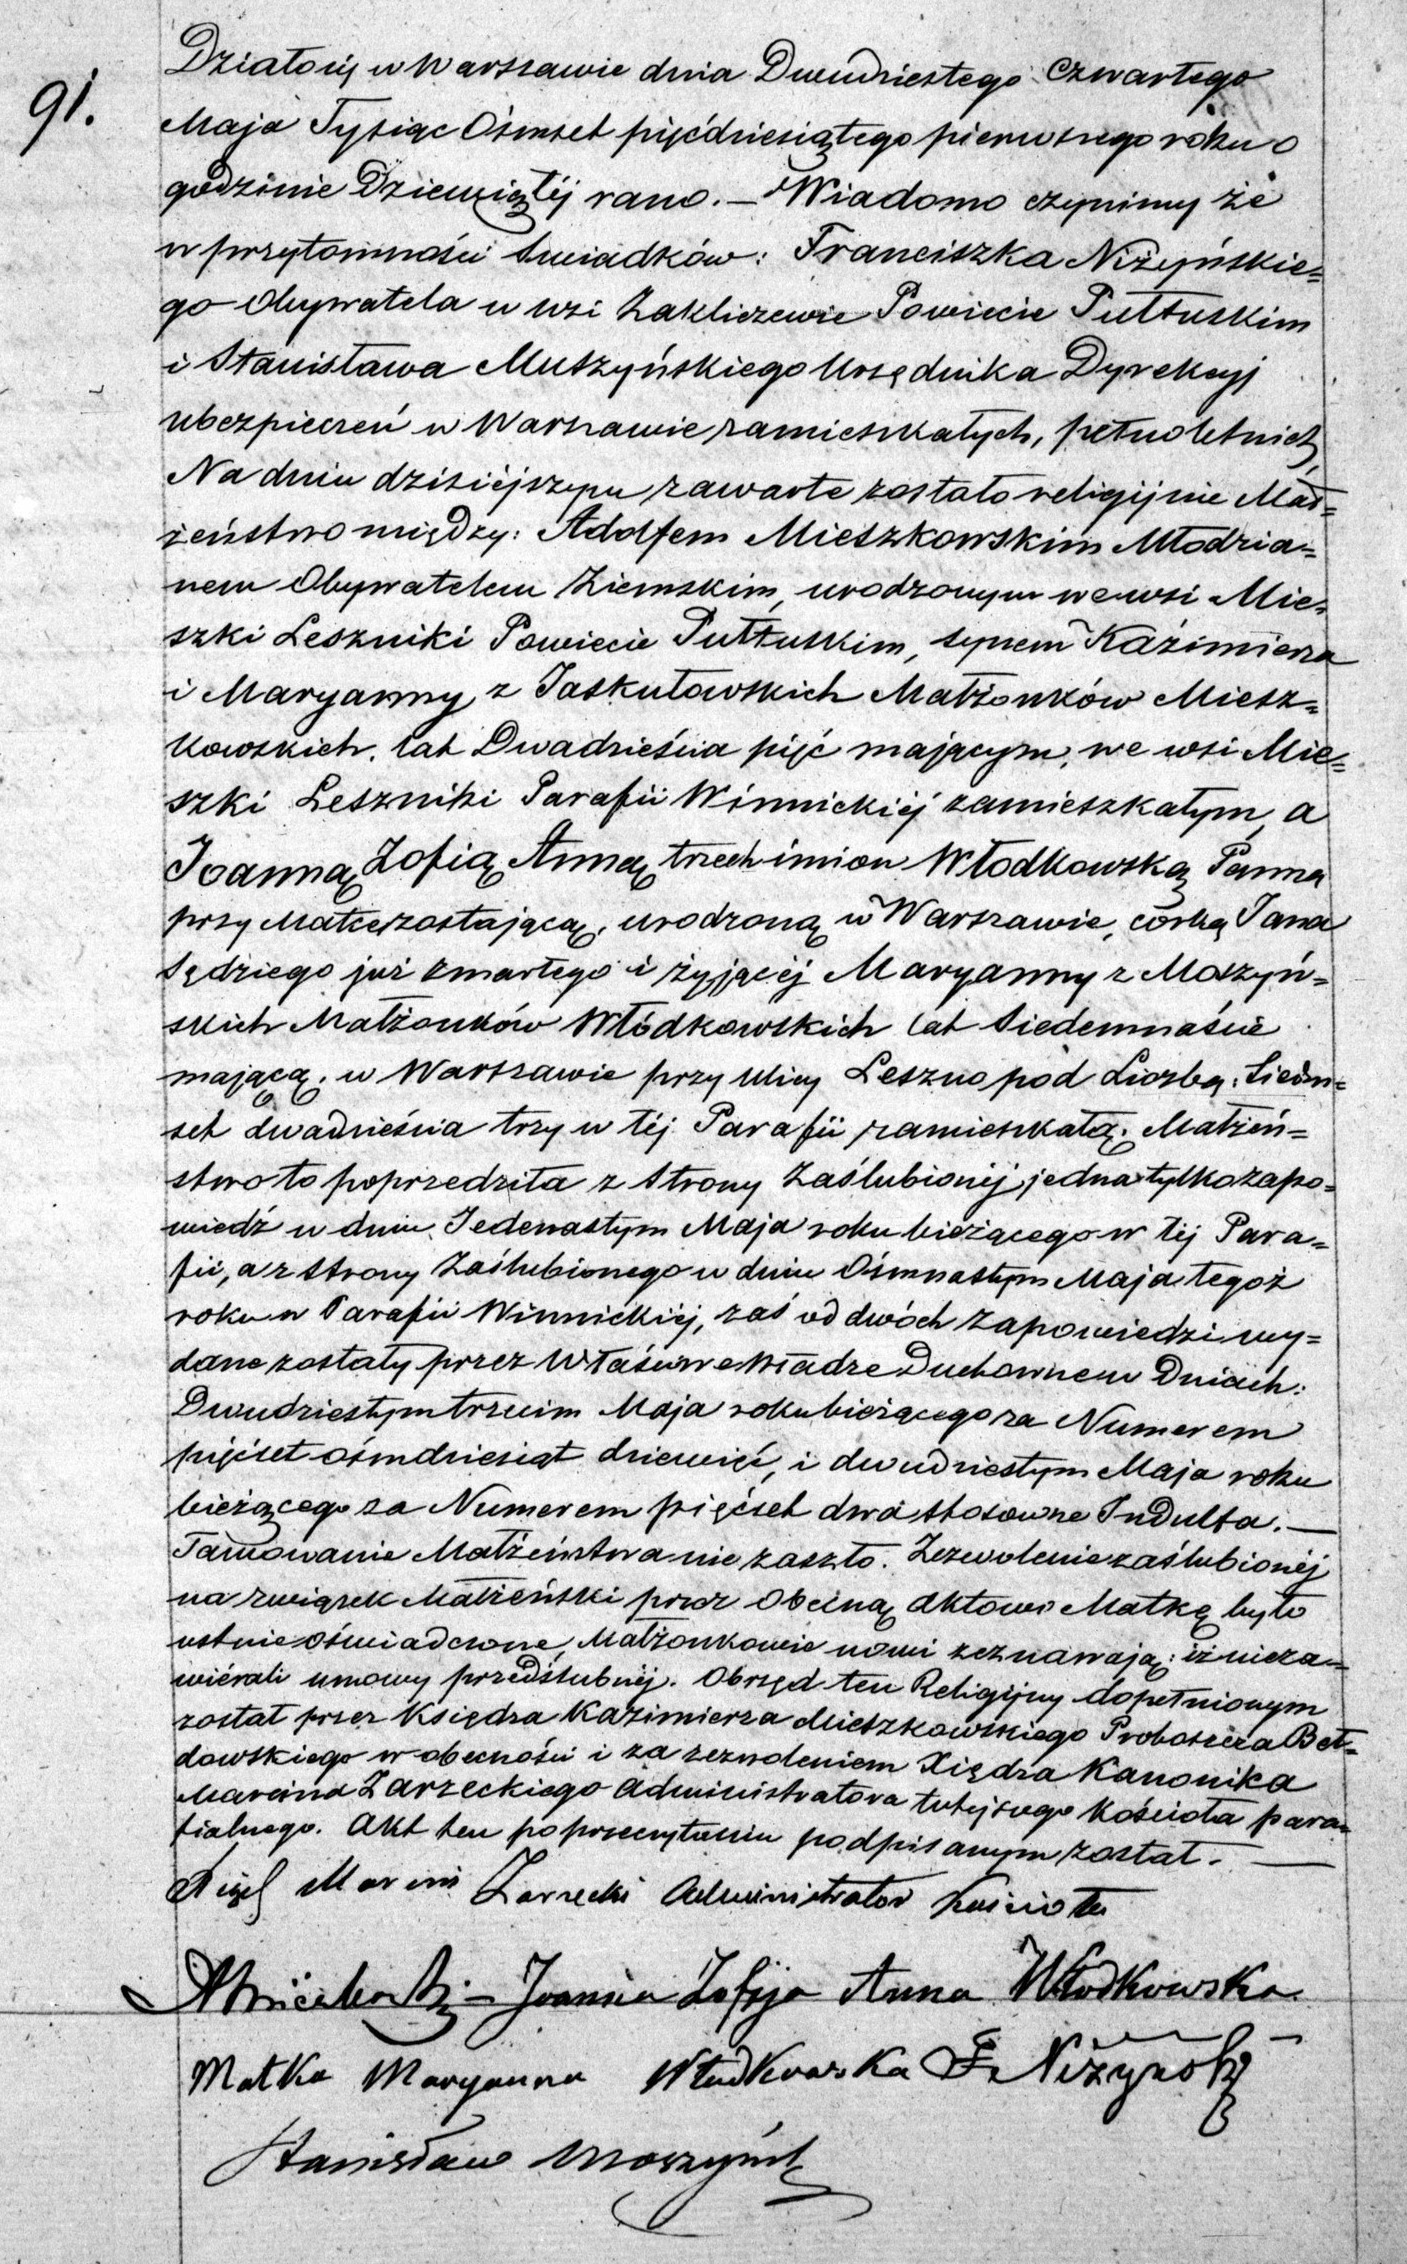 91.
Działo się w Warszawie dnia Dwudziestego Czwartego
Maja Tysiąc Ośmset pięćdziesiątego pierwszego roku o
godzinie Dziewiątéj rano. — Wiadomo czynimy że
w przytomności Świadków: Franciszka Niżyńskie=
go Obywatela w wsi Zakliczewie Powiecie Pułtuskim
i Stanisława Muszyńskiego Urzędnika Dyrekcyj
ubezpieczeń w Warszawie zamieszkałych, pełnoletnich,
Na dniu dzisiéjszym zawarte zostało religijnie Mał=
żeństwo między: Adolfem Mieszkowskim Młodzia=
nem Obywatelem Ziemskim, urodzonym we wsi Mie=
szki Leszniki Powiecie Pułtuskim, synem Kaźimierza
i Maryanny z Jaskułowskich Małżonków Miesz=
kowskich, lat Dwadzieścia pięć mającym, we wsi Mie=
szki Leszniki Parafii Winnickiéj zamieszkałym, a
Joanną Zofią Anną trzech imion Włodkowską Panną
przy Matce zostającą, urodzoną w Warszawie, córką Jana
Sędziego już zmarłego i żyjącéj Maryanny z Moszyń=
skich Małżonków Włodkowskich lat Siedemnaście
mającą, w Warszawie przy ulicy Leszno pod Liczbą: Siedm=
set dwadzieścia trzy w téj Parafii zamieszkałą. Małżeń=
stwo to poprzedziła z Strony Zaślubionéj, jedna tylko zapo=
wiedź w dniu Jedenastym Maja roku bieżącego w téj Para=
fii, a z Strony Zaślubionego w dniu Ośmnastym Maja tegoż
roku w Parafii Winnickiéj, zaś od dwóch Zapowiedzi wy=
dane zostały przez Właściwe Władze Duchowne w Dniach:
Dwudziestym trzecim Maja roku bieżącego za Numerem
pięćset ośmdziesiąt dziewięć, i dwudziestym Maja roku
bieżącego za Numerem pięćset dwa stosowne Indulta. —
Tamowanie Małżeństwa nie zaszło. Zezwolenie zaślubionéj
na związek Małżeński przez Obecną Aktowi Matkę było
ustnie oświadczone, Małżonkowie nowi zeznawają: iż nieza=
wiérali umowy przedślubnéj. Obrzęd ten Religijny dopełnionym
został przez Księdza Kazimierza Mieszkowskiego Proboszcza Beł=
dowskiego w obecności i za zezwoleniem Xiędza Kanonika
Marcina Zarzeckiego Administratora tutejszego Kościoła para=
fialnego. Akt ten po przeczytaniu podpisanym został. —
Xiądz Marcin Zarzecki Administrator Kościoła
AMieszkowski — Joanna Zofija Anna Włodkowska
Matka Maryanna Włodkowska F. Niżyński
Stanisław Moszyński